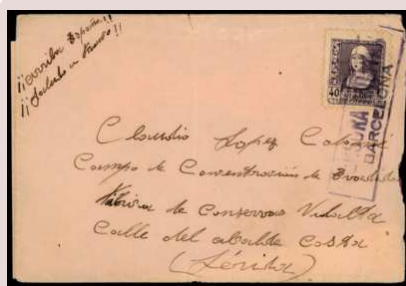 ¡¡Arriba España!!
¡¡Saludo a Franco!!
40
CENSURA
BARCELONA
Claudio Lopez
Campo de Concentración de
de Conservas Vidalta
Calle del alcalde Costa
(Lérida)